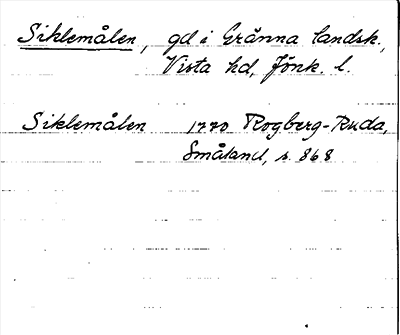 Siklemålen, gd i Gränna landsk.,
Vista hd, Jönk. l.
Siklemålen 1770 Rogberg-Ruda,
Småland, s. 868